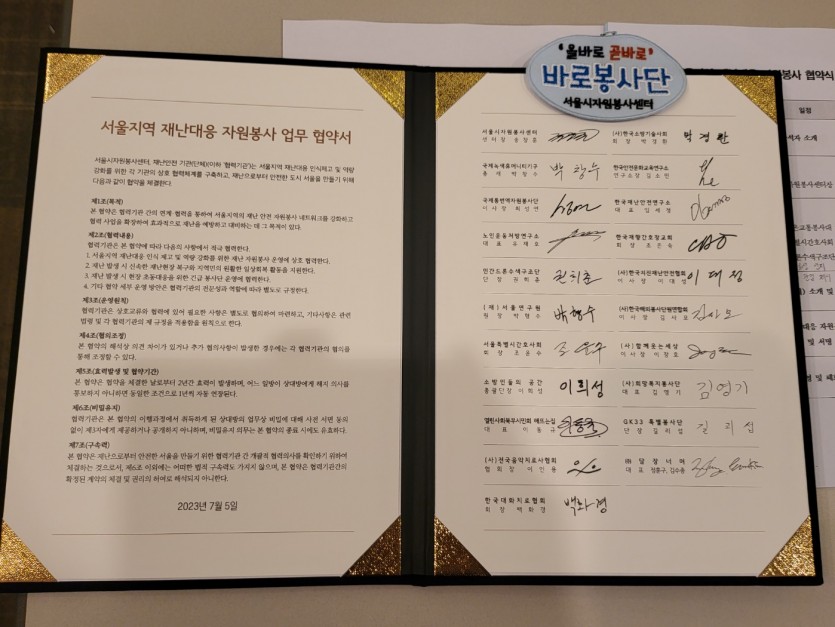 '올바로 곧바로'
바로봉사단
서울시자원봉사센터
봉사 협약식
일정
서울지역 재난대응 자원봉사 업무 협약서
서울시자원봉사센터, 재난안전 기관(단체)(이하 '협력기관')는 서울지역 재난대응 인식제고 및 역량
강화를 위한 각 기관의 상호 협력체계를 구축하고, 재난으로부터 안전한 도시 서울을 만들기 위해
다음과 같이 협약을 체결한다.
제1조(목적)
본 협약은 협력기관 간의 연계·협력을 통하여 서울지역의 재난 안전 자원봉사 네트워크를 강화하고
협력 사업을 확장하여 효과적으로 재난을 예방하고 대비하는 데 그 목적이 있다.
제2조(협력내용)
협력기관은 본 협약에 따라 다음의 사항에서 적극 협력한다.
1. 서울지역 재난대응 인식 제고 및 역량 강화를 위한 재난 자원봉사 운영에 상호 협력한다.
2. 재난 발생 시 신속한 재난현장 복구와 지역민의 원활한 일상회복 활동을 지원한다.
3. 재난 발생 시 현장 초동대응을 위한 긴급 봉사단 운영에 협력한다.
4. 기타 협약 세부 운영 방안은 협력기관의 전문성과 역할에 따라 별도로 규정한다.
제3조(운영원칙)
협력기관은 상호교류와 협력에 있어 필요한 사항은 별도로 협의하여 마련하고, 기타사항은 관련
법령 및 각 협력기관의 제 규정을 적용함을 원칙으로 한다.
제4조(협의조정)
본 협약의 해석상 의견 차이가 있거나 추가 협의사항이 발생한 경우에는 각 협력기관의 협의를
통해 조정할 수 있다.
제5조(효력발생 및 협약기간)
본 협약은 협약을 체결한 날로부터 2년간 효력이 발생하며, 어느 일방이 상대방에게 해지 의사를
통보하지 아니하면 동일한 조건으로 1년씩 자동 연장된다.
제6조(비밀유지)
협력기관은 본 협약의 이행과정에서 취득하게 된 상대방의 업무상 비밀에 대해 사전 서면 동의
없이 제3자에게 제공하거나 공개하지 아니하며, 비밀유지 의무는 본 협약의 종료 시에도 유효하다.
제7조(구속력)
본 협약은 재난으로부터 안전한 서울을 만들기 위한 협력기관 간 개괄적 협력의사를 확인하기 위하여
체결하는 것으로서, 제6조 이외에는 어떠한 법적 구속력도 가지지 않으며, 본 협약은 협력기관간의
확정된 계약의 체결 및 권리의 허여로 해석되지 아니한다.
2023년 7월 5일
서울시자원봉사센터 (사)한국소방기술사회
센터장 회장 박경환 박경환
국제녹색휴머니티기구 한국안전문화교육연구소
총재 박창수 박창수 연구소장 김소연
국제통번역자원봉사단 한국재난안전연구소
이사장 최인연 대표 김세영
노인운동처방연구소 한국재향간호장교회
대표 우제로 회장 조은숙
민간드론수색구조단 (사)한국외식산재난안전협회
단장 권희춘 권희춘 이사장 이대성
(재)서울연구원 (사)한국해외봉사단원연합회
원장 박형수 박형수 이사장
서울특별시간호사회 (사)함께웃는세상
회장 조윤수 조윤수 이사장
소방인들의 공간 (사)희망복지봉사단
총괄단장 이희성 이희성 대표 김영기 김영기
열린사회북부시민회 해뜨는집 GK33 특별봉사단
대표 이동구 단장 길리섭 길리섭
(사)전국음악치료사협회 ㈜담장너머
협회장 이인용 대표 정흥구, 김수종
한국대화치료협회
회장 백화경 백화경